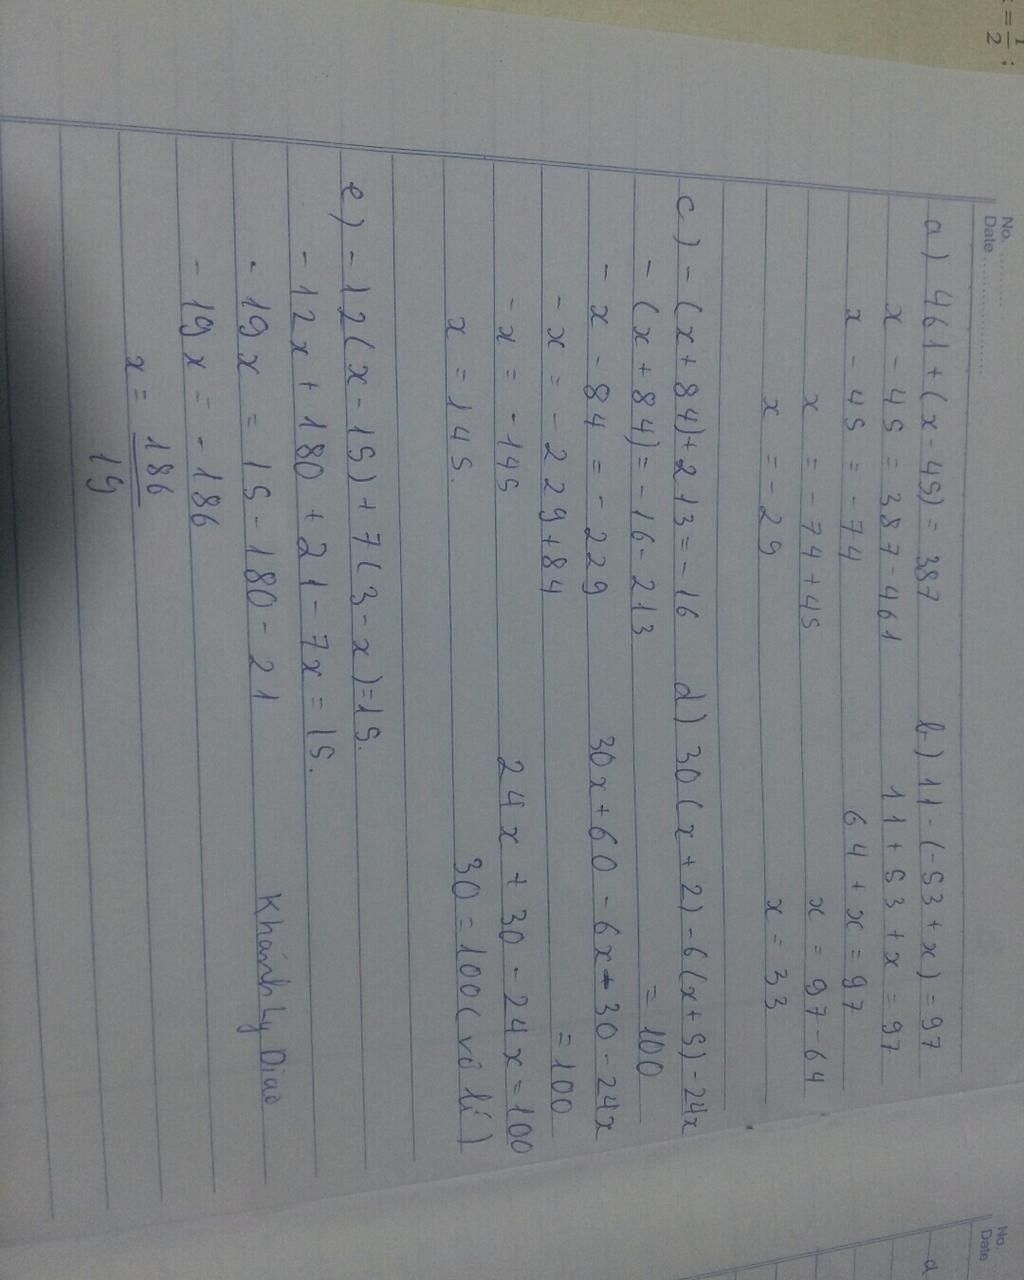 x = 1/2 ;
No. ............
Date ............
a) 461 + (x - 45) = 387
x - 45 = 387 - 461
x - 45 = - 74
x = - 74 + 45
x = - 29
b) 11 - (-53 + x) = 97
11 + 53 + x = 97
64 + x = 97
x = 97 - 64
x = 33
c) - (x + 84) + 213 = - 16
- (x + 84) = - 16 - 213
- x - 84 = - 229
- x = - 229 + 84
- x = - 145
x = 145.
d) 30(x + 2) - 6(x + 5) - 24x
= 100
30x + 60 - 6x - 30 - 24x
= 100
24x + 30 - 24x = 100
30 = 100 (vô lí)
e) - 12(x - 15) + 7(3 - x) = 15.
- 12x + 180 + 21 - 7x = 15.
- 19x = 15 - 180 - 21
- 19x = - 186
x = 186/19
Khánh Ly Diao
No.
Date
a